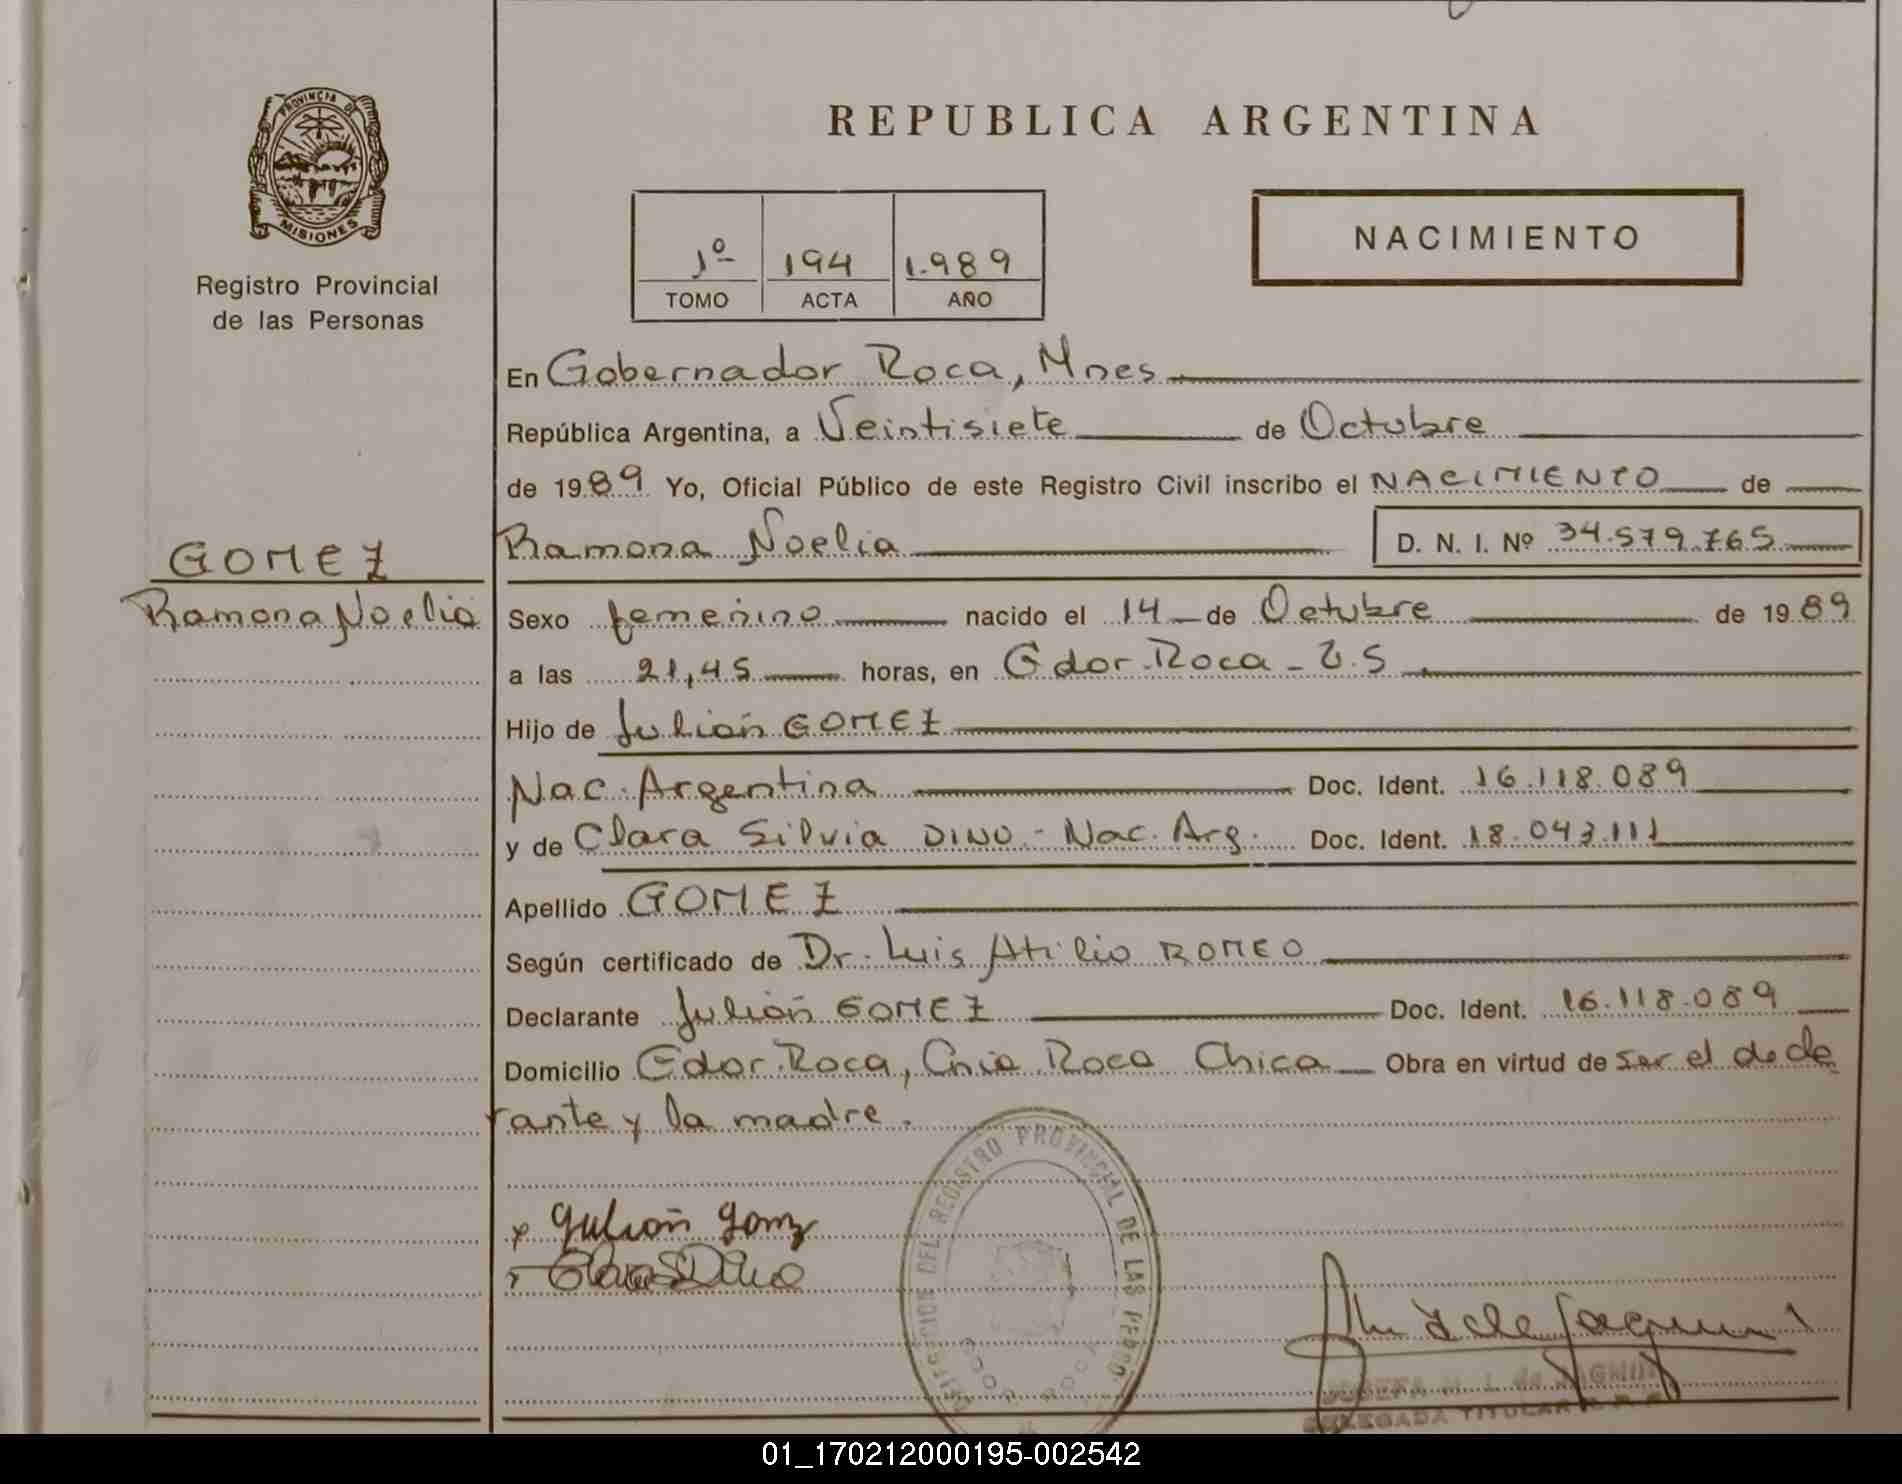 PROVINCIA DE
MISIONES
Registro Provincial
de las Personas
GOMEZ
Ramona Noelia
REPUBLICA ARGENTINA
1º 194 1.989
TOMO ACTA AÑO
NACIMIENTO
En Gobernador Roca, Mnes
República Argentina, a Veintisiete de Octubre
de 1989 Yo, Oficial Público de este Registro Civil inscribo el NACIMIENTO de
Ramona Noelia D. N. I. Nº 34.579.765
Sexo femenino nacido el 14 de Octubre de 1989
a las 21,45 horas, en Gdor. Roca - U.S
Hijo de Julián GOMEZ
Nac. Argentina Doc. Ident. 16.118.089
y de Clara Silvia DINO - Nac. Arg. Doc. Ident. 18.043.111
Apellido GOMEZ
Según certificado de Dr. Luis Atilio ROMEO
Declarante Julián GOMEZ Doc. Ident. 16.118.089
Domicilio Gdor. Roca, Cnia Roca Chica Obra en virtud de ser el decla
rante y la madre.
DEL REGISTRO PROVINCIAL DE LAS
x Julián Gomz
Clara S Dino
DELEGADA TITULAR
01_170212000195-002542